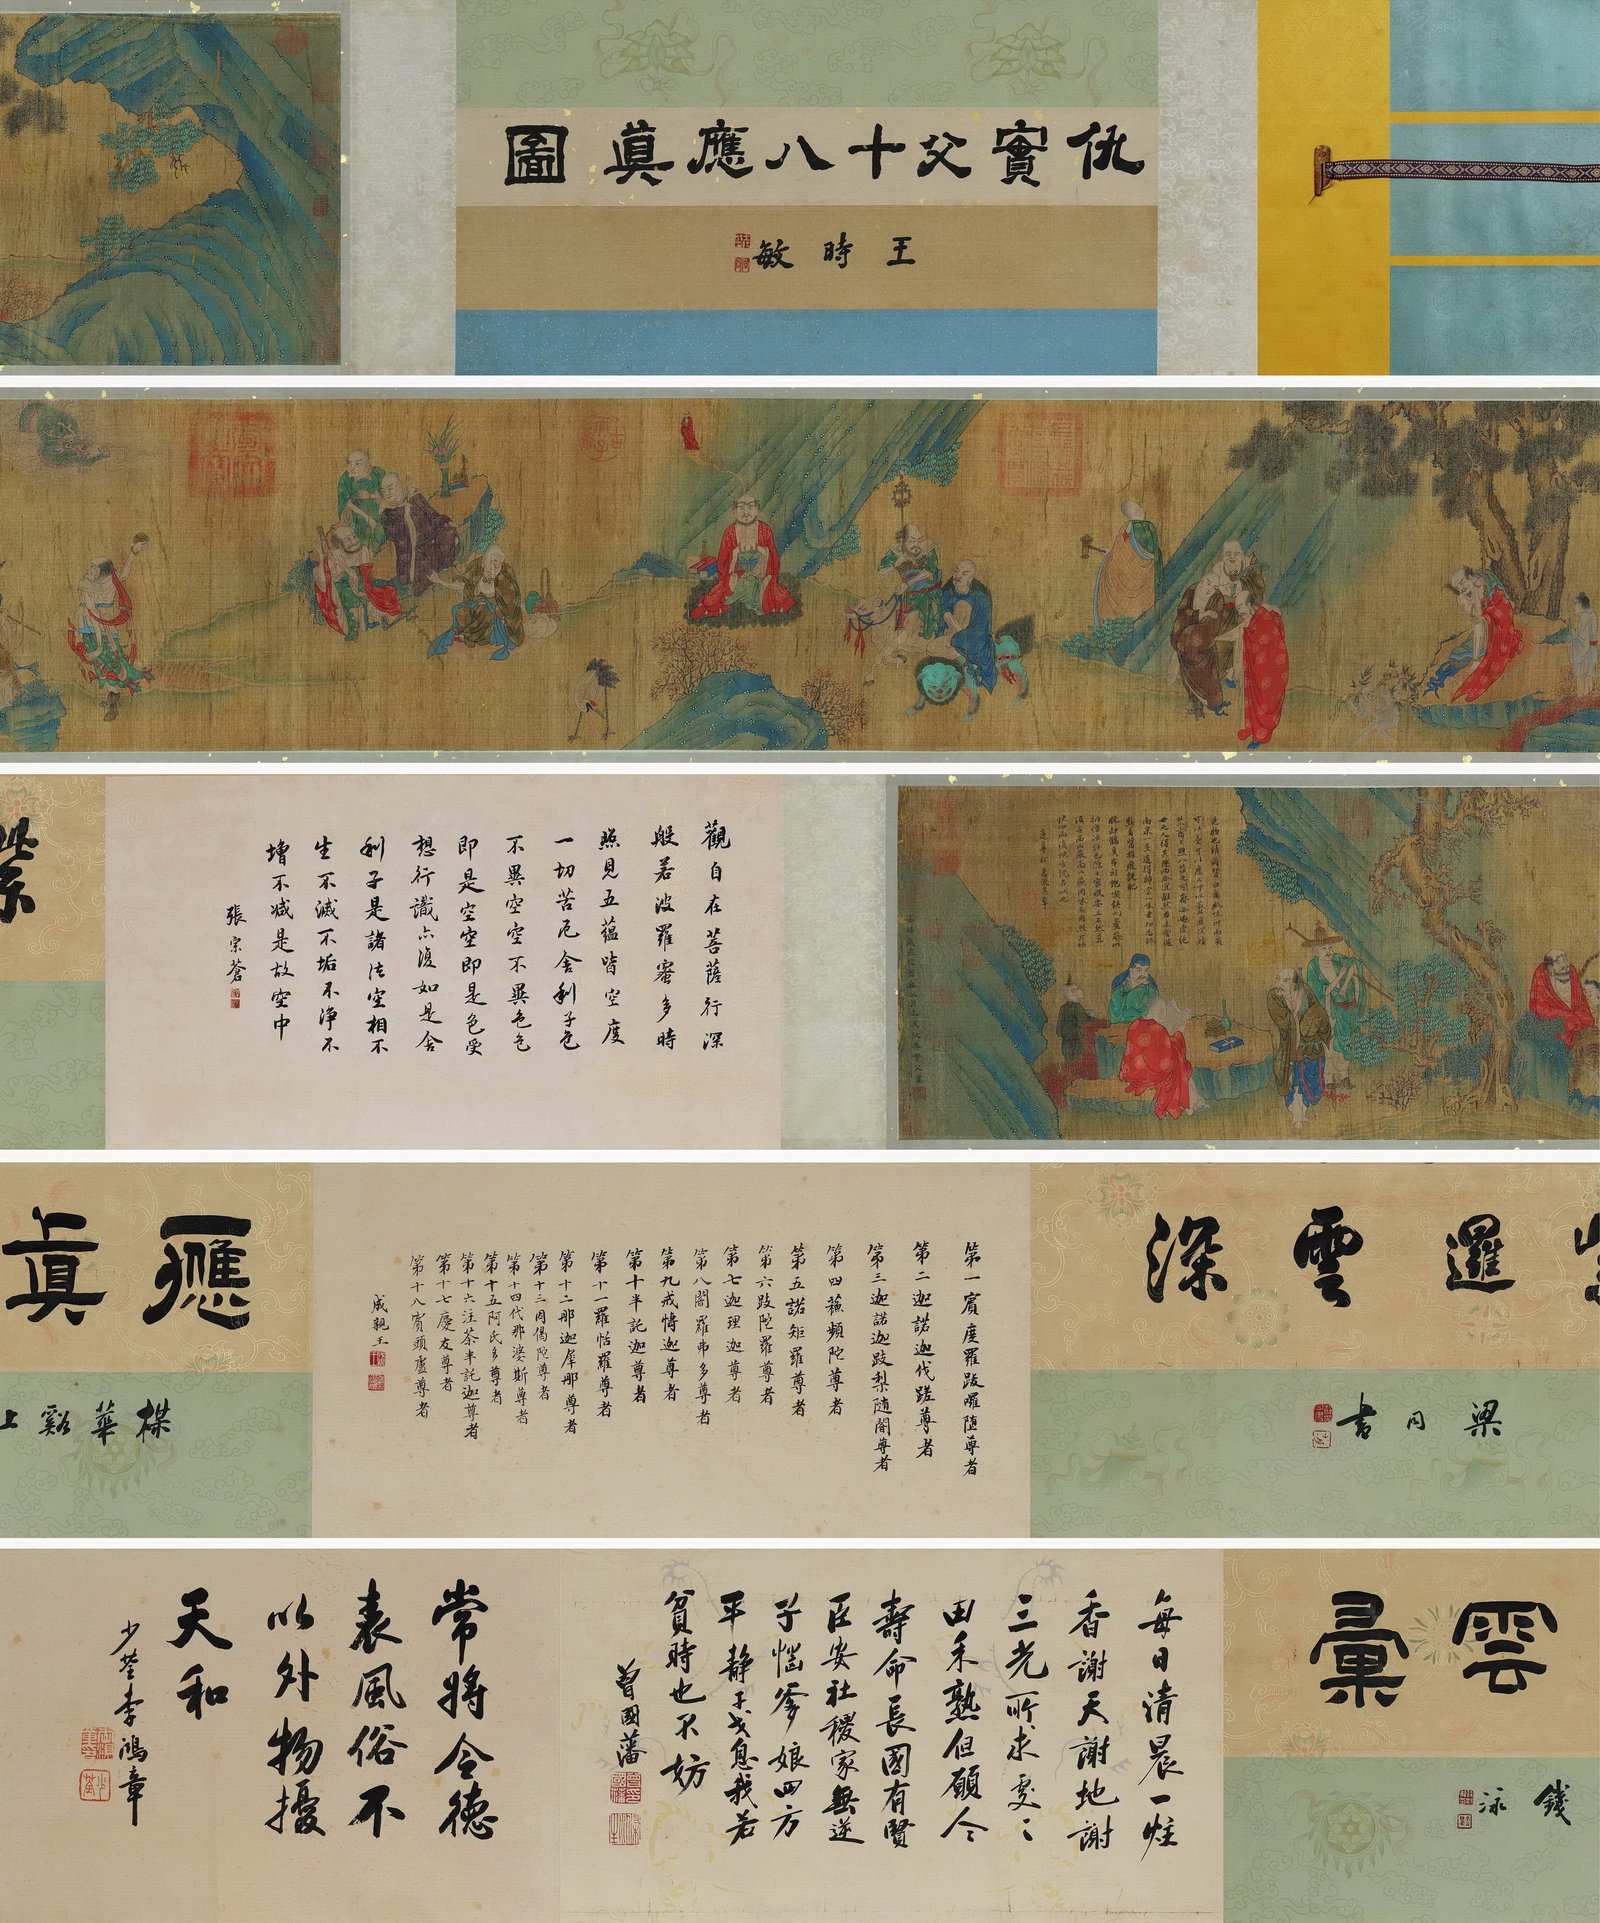 仇實父十八應真圖
王時敏
觀自在菩薩行深
般若波羅蜜多時
照見五蘊皆空度
一切苦厄舍利子色
不異空空不異色色
即是空空即是色受
想行識亦復如是舍
利子是諸法空相不
生不滅不垢不淨不
增不減是故空中
張宗蒼
邏雲深
梁同書
第一賓度羅跋囉墮尊者
第二迦諾迦伐蹉尊者
第三迦諾迦跋梨隨闍尊者
第四蘇頻陀尊者
第五諾矩羅尊者
第六跋陀羅尊者
第七迦理迦尊者
第八闍羅弗多尊者
第九戒博迦尊者
第十半託迦尊者
第十一羅怙羅尊者
第十二那迦犀那尊者
第十三因偈陀尊者
第十四代那婆斯尊者
第十五阿氏多尊者
第十六注茶半託迦尊者
第十七慶友尊者
第十八賓頭盧尊者
成親王
應真
楳華谿上
雲彙
錢泳
每日清晨一炷
香謝天謝地謝
三光所求處〻
田禾熟但願人
壽命長國有賢
臣安社稷家無逆
子惱爹娘四方
平靜干戈息我若
貧時也不妨
曾國藩
常將令德
表風俗不
以外物擾
天和
少荃李鴻章